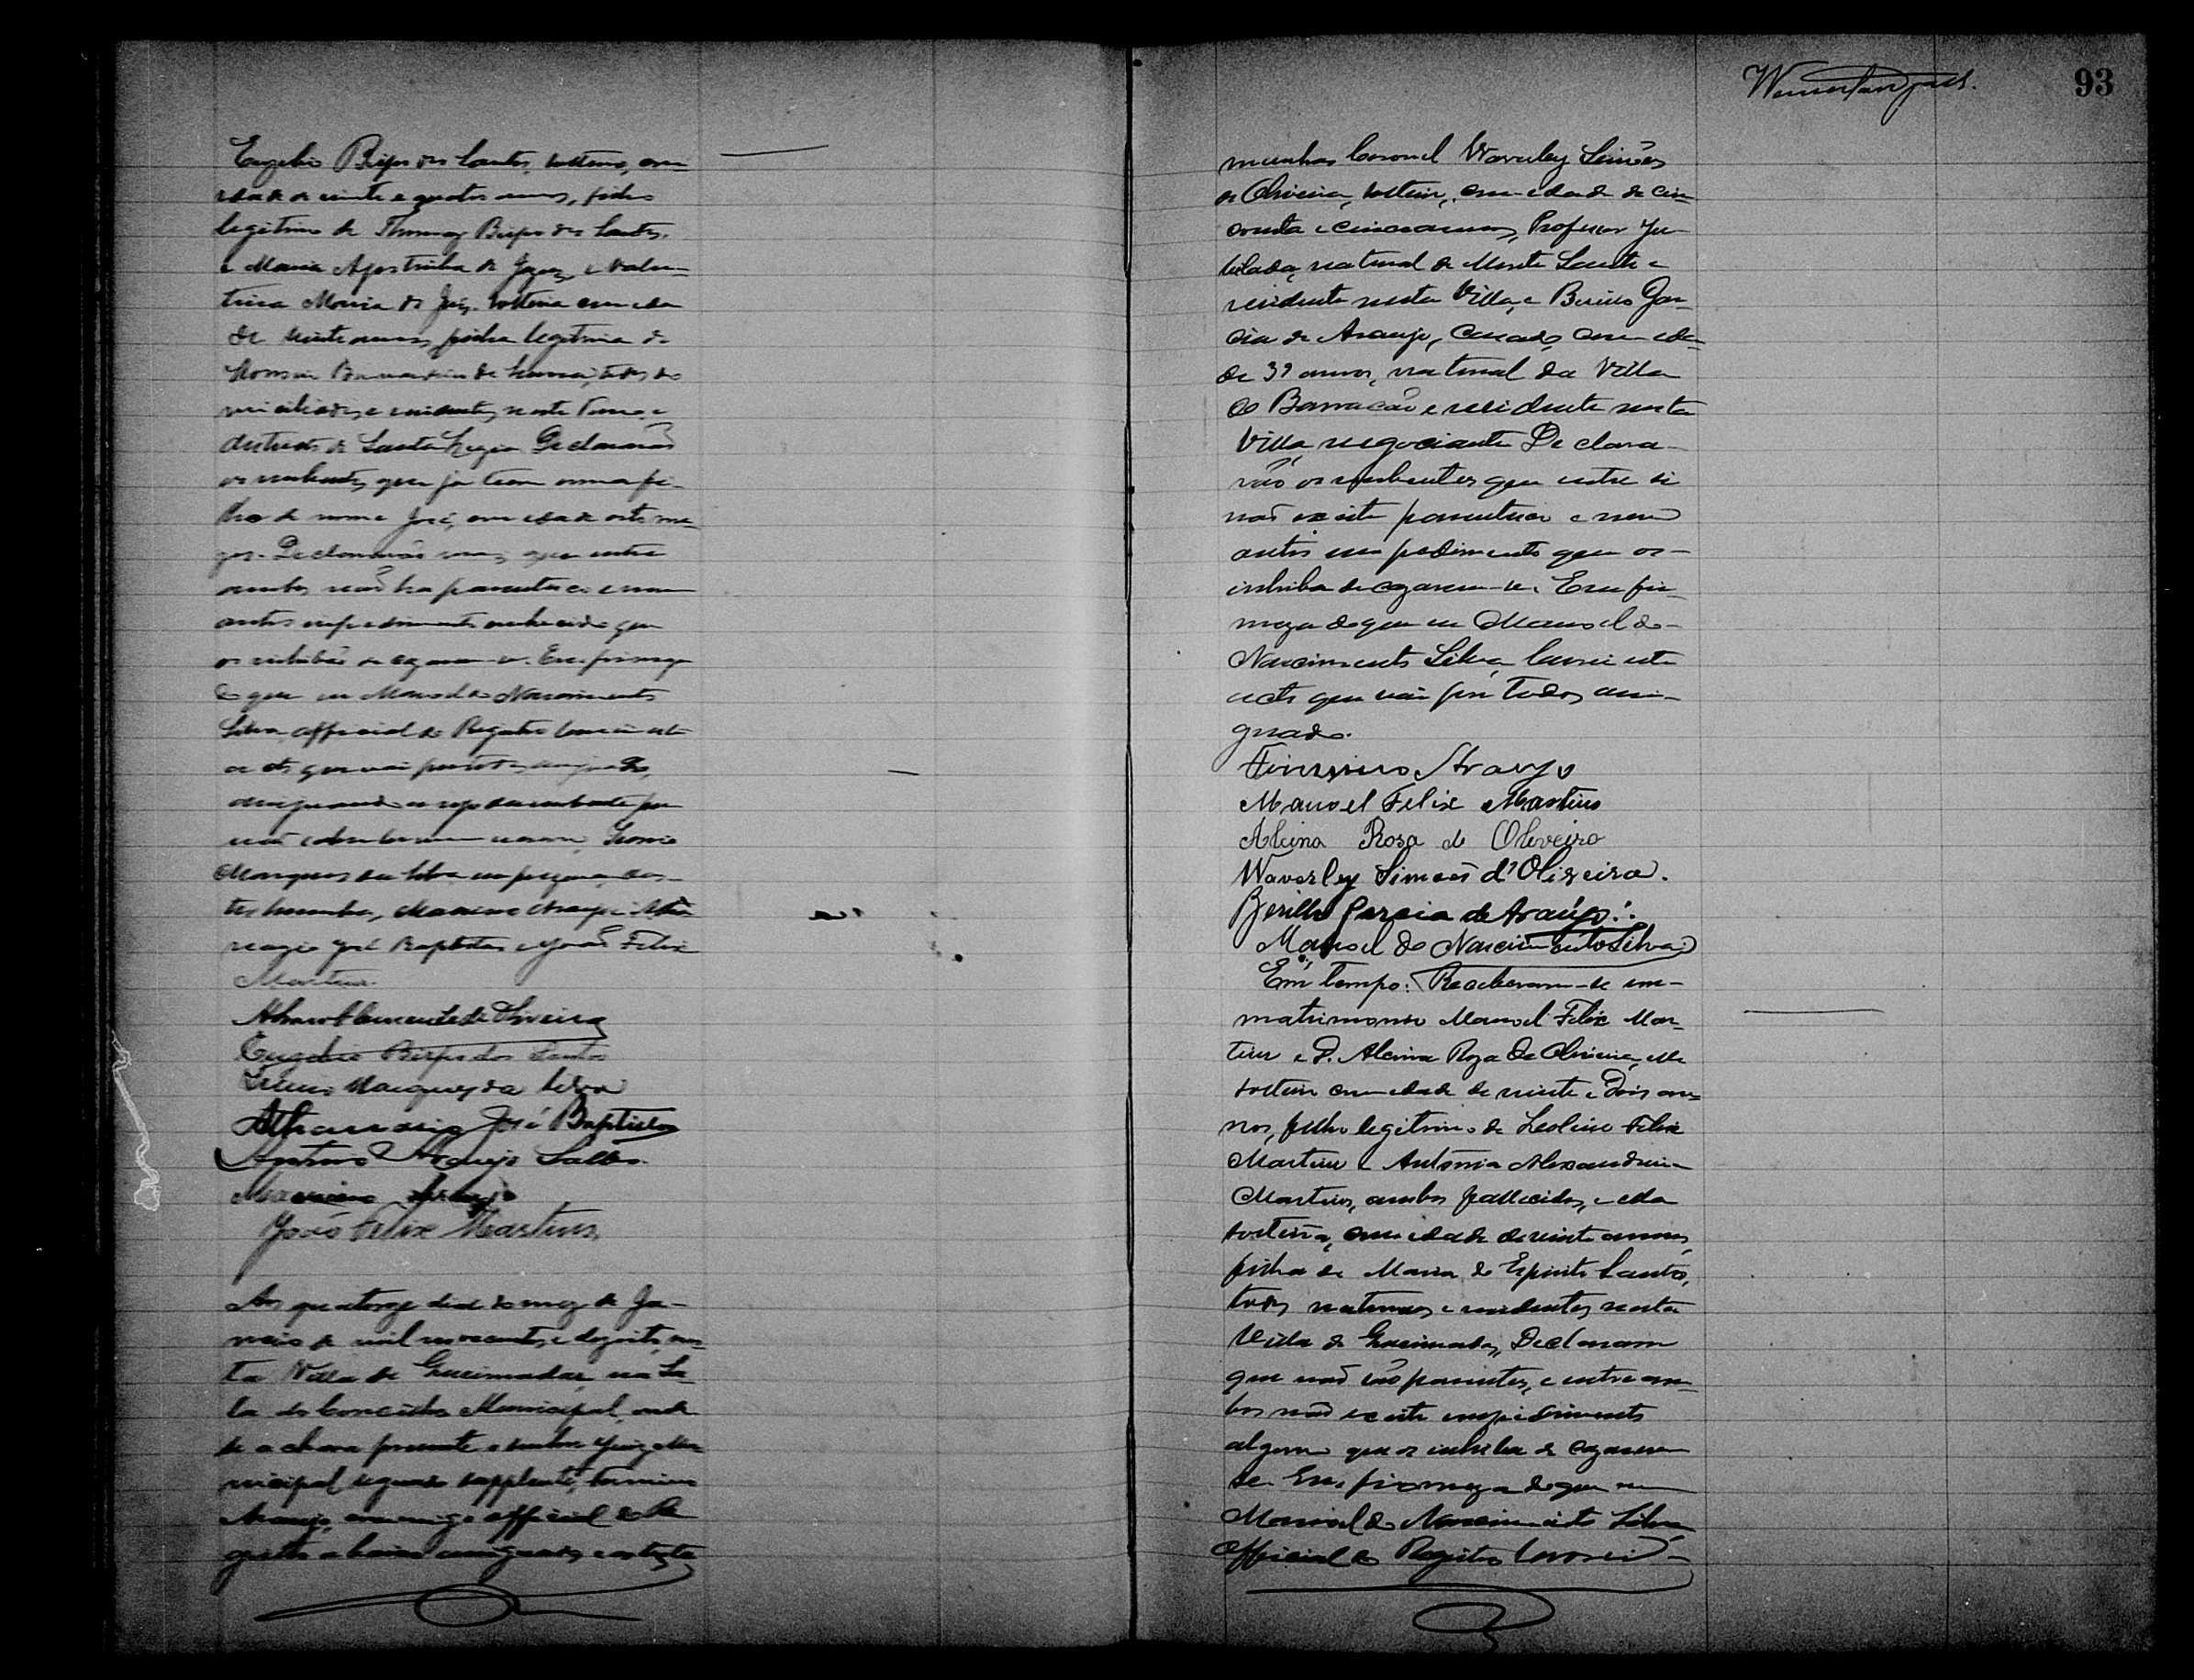 Eugebio Bispo dos Santos, solteiro, com
idade de vinte e quatro annos, filho
legitimo de Thomaz Bispo dos Santos,
e Maria Agostinha de Jezus, e Valen-
tina Maria de Jezus solteira com ida
de vinte annos, filha legitima de
todos do
e residentes neste Termo e
districto de Santa Luzia Declararão
os nubentes que ja teem um fi-
lho de nome José, com idade oito me-
zes. Declararão mais que entre
ambos não ha parentesco e nem
outro impedimento conhecido que
os inhibão de cazarem-se. Em firmeza
do que eu Manoel do Nascimento
Silva official do Registro lavrei este
acto que vai por todos assignado,
assignando a rogo da nubente por
não saber escrever
Marques da Silva em prezença das
testemunhas, Maximo Araujo Atha
nazio José Baptista e João Felix
Martins.
Alvaro Clemente de Oliveira
Eugebio Bispo dos Santos
Marques da Silva
Athanazio José Baptista
Antonio Araujo Salles.
Araujo
João Felix Martins
Aos quatorze dias do mez de Ja-
neiro de mil novecentos e dezoito, nes-
ta Villa de Queimadas, na Sa-
la do Conselho Municipal, onde
se achava presente o senhor Juiz Mu-
nicipal segundo supplente, Firmino
Araujo, commigo official do Re
gistro abaixo assignado e as teste
Wanderley
93
munhas Coronel Waverley Simões
de Oliveira, solteiro, com idade de cin-
coenta e cinco annos, Professor Ju-
bilado, natural de Monte Santo e
residente nesta Villa, e Berillo Gar-
cia de Araujo, casado, com ida-
de 39 annos, natural da Villa
do Barracão e residente nesta
Villa, negociante. Declara-
rão os nubentes que entre si
não existe parentesco e nem
outro impedimento que os-
inhiba de cazarem-se. Em fir-
meza do que eu Manoel do-
Nascimento Silva, lavrei este
acto que vai por todos assi-
gnado.
Firmino Araujo
Manoel Felix Martins
Alcina Rosa de Oliveira
Waverley Simões d'Oliveira.
Berillo Garcia de Araújo.
Manoel do Nascimento Silva
Em tempo: Receberam-se em-
matrimonio Manoel Felix Mar-
tins e D. Alcina Roza de Oliveira, elle
solteiro com idade de vinte e dois an-
nos, filho legitimo de Leolino Felix
Martins e Antonia Alexandrina
Martins, ambos fallecidos, e ella
solteira, com idade de vinte annos,
filha de Maria do Espirito Santo,
todos naturaes e residentes nesta
Villa de Queimadas, Declararam
que não são parentes, e entre am-
bos não existe impedimento
algum que os inhiba de cazarem
se. Em firmeza do que eu
Manoel do Nascimento Silva
Official do Registro lavrei